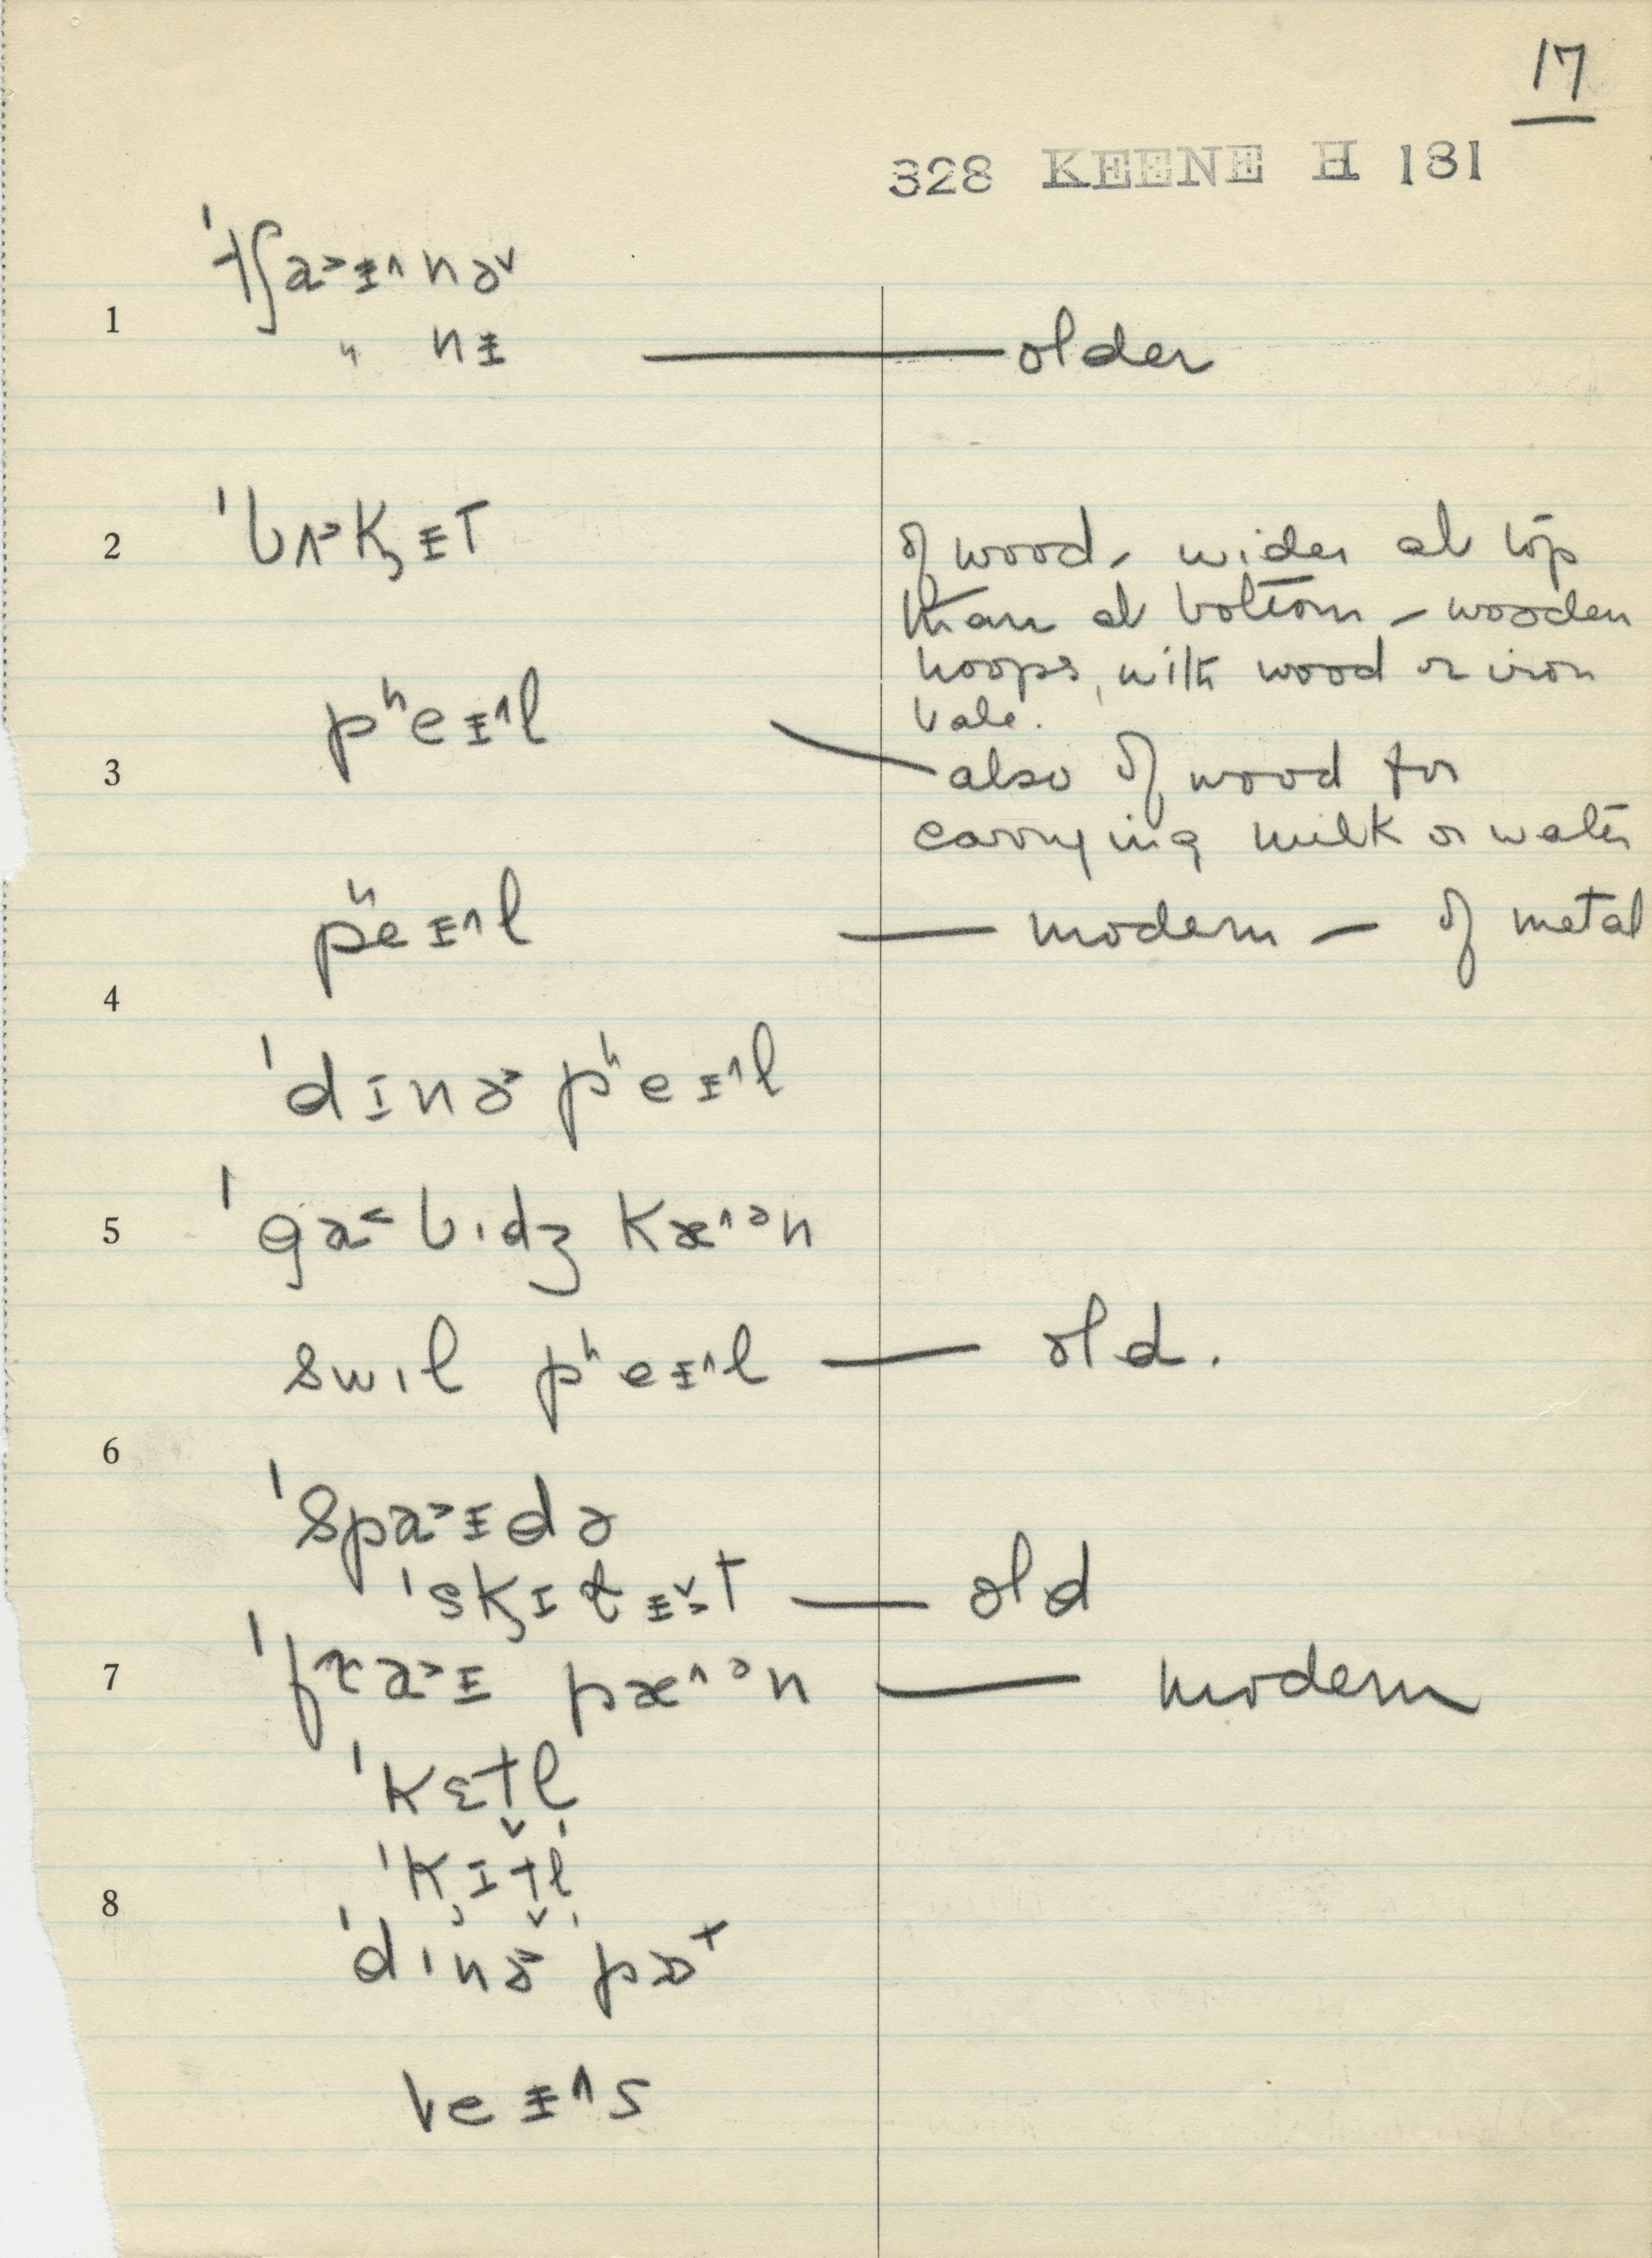 17
328 KEENE H 131
ˈtʃa˃ɨ˄nə˅
1
" nɨ — older
2 ˈbʌ˃k̡ɨt of wood, wider at top
than at bottom – wooden
hoops, with wood or iron
bale.
pʰeɨ˄l
3 also of wood for
carrying milk or water
pʰeɨ˄l — modern — of metal
4
ˈdɪnɚ pʰeɨ˄l
5 ˈga˂bɪdʒ kæ˄ᵊn
swɪl pʰeɨ˄l — old.
6
ˈspa˃ɨdə
ˈsk̡ɪlɨt — old
7 ˈfra˃ɨ pæ˄ᵊn — modern
ˈkɛt̬l̩
8 ˈk̡ɪt̬l̩
ˈdɪnɚ pɒt
veɨ˄s